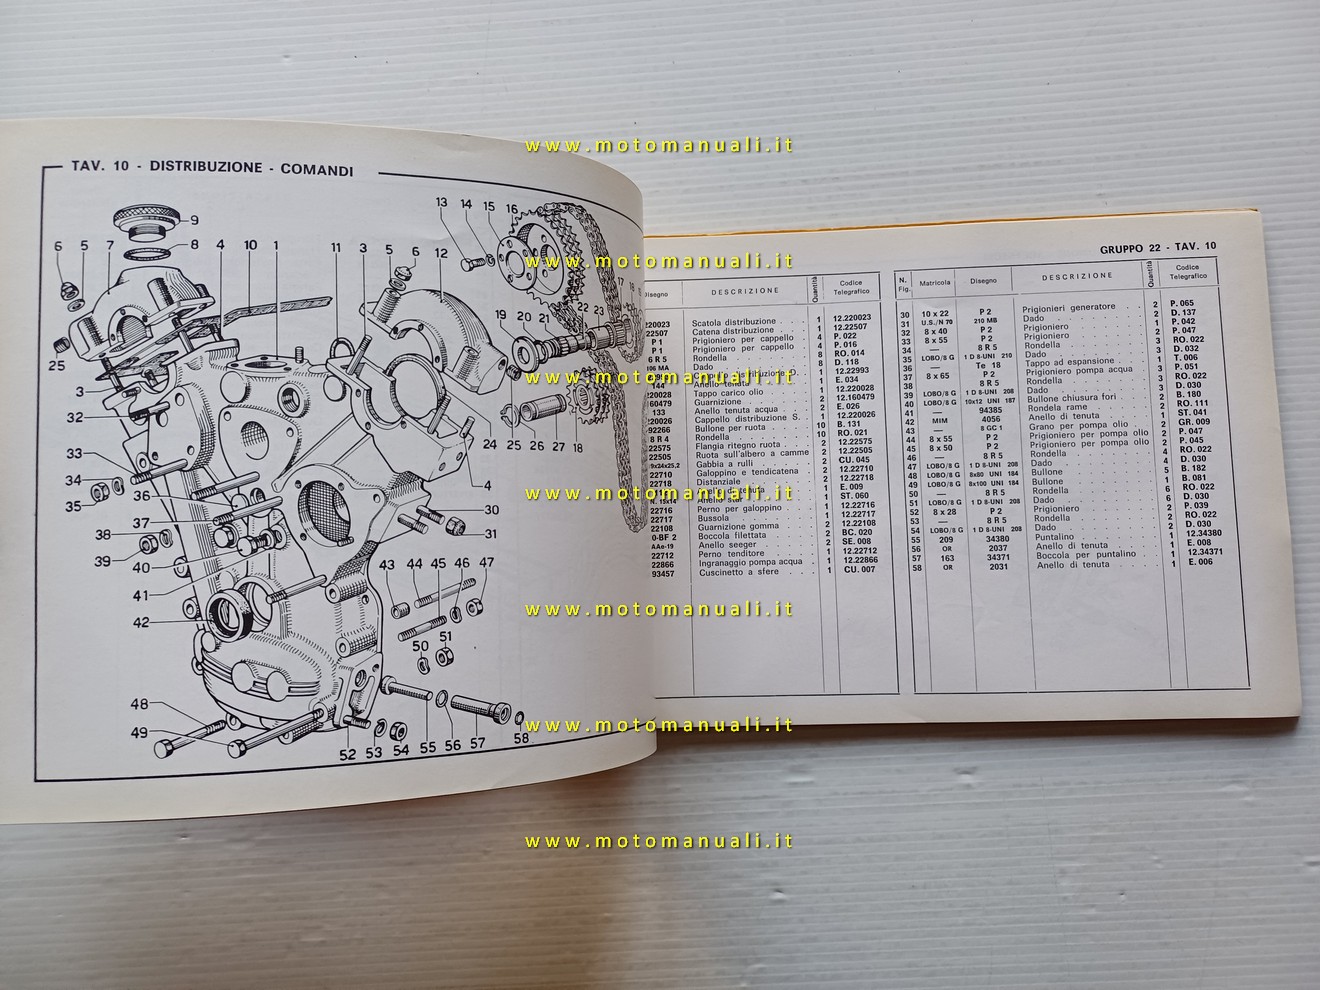 TAV. 10 - DISTRIBUZIONE - COMANDI
13 14 15 16
9
6 5 7 8 4 10 1 11 3 5 6 12
17 18
19 20 21 22 23
25
3
32
33
34
35
36
37
38
39
40
41
42
24 25 26 27 18
4
30
31
43 44 45 46 47
50 51
48
49
52 53 54 55 56 57 58
www.motomanuali.it
www.motomanuali.it
www.motomanuali.it
www.motomanuali.it
www.motomanuali.it
www.motomanuali.it
www.motomanuali.it
GRUPPO 22 - TAV. 10
Disegno DESCRIZIONE Quantità Codice Telegrafico
220023 Scatola distribuzione 1 12.220023
22507 Catena distribuzione 1 12.22507
P 1 Prigioniero per cappello 4 P. 022
P 1 Prigioniero per cappello 4 P. 016
6 R 5 Rondella 8 RO. 014
106 MA Dado 8 D. 118
D. 1 12.22993
144 Anello tenuta 1 E. 034
220028 Tappo carico olio 1 12.220028
160479 Guarnizione 2 12.160479
133 Anello tenuta acqua 2 E. 026
220026 Cappello distribuzione S. 1 12.220026
92266 Bullone per ruota 10 B. 131
8 R 4 Rondella 10 RO. 021
22575 Flangia ritegno ruota 2 12.22575
22505 Ruota sull'albero a camme 2 12.22505
19x24x25,2 Gabbia a rulli 2 CU. 045
22710 Galoppino e tendicatena 2 12.22710
22718 Distanziale 2 12.22718
1 E. 009
N. 15x14 Anello 1 ST. 060
22716 Perno per galoppino 1 12.22716
22717 Bussola 1 12.22717
22108 Guarnizione gomma 2 12.22108
0-BF 2 Boccola filettata 2 BC. 020
AAe-19 Anello seeger 2 SE. 008
22712 Perno tenditore 1 12.22712
22866 Ingranaggio pompa acqua 1 12.22866
93457 Cuscinetto a sfere 1 CU. 007
N. Fig. Matricola Disegno DESCRIZIONE Quantità Codice Telegrafico
30 10 x 22 P 2 Prigionieri generatore 2 P. 065
31 U.S./N 70 210 MB Dado 2 D. 137
32 8 x 40 P 2 Prigioniero 1 P. 042
33 8 x 55 P 2 Prigioniero 2 P. 047
34 — 8 R 5 Rondella 3 RO. 022
35 LOBO/8 G 1 D 8-UNI 210 Dado 3 D. 032
36 — Te 18 Tappo ad espansione 1 T. 006
37 8 x 65 P 2 Prigioniero pompa acqua 3 P. 051
38 — 8 R 5 Rondella 3 RO. 022
39 LOBO/8 G 1 D 8-UNI 208 Dado 3 D. 030
40 LOBO/8 G 10x12 UNI 187 Bullone chiusura fori 2 B. 180
41 — 94385 Rondela rame 2 RO. 111
42 MIM 4056 Anello di tenuta 1 ST. 041
43 — 8 GC 1 Grano per pompa olio 2 GR. 009
44 8 x 55 P 2 Prigioniero per pompa olio 2 P. 047
45 8 x 50 P 2 Prigioniero per pompa olio 2 P. 045
46 — 8 R 5 Rondella 4 RO. 022
47 LOBO/8 G 1 D 8-UNI 208 Dado 4 D. 030
48 LOBO/8 G 8x80 UNI 184 Bullone 5 B. 182
49 LOBO/8 G 8x100 UNI 184 Bullone 1 B. 081
50 — 8 R 5 Rondella 6 RO. 022
51 LOBO/8 G 1 D 8-UNI 208 Dado 6 D. 030
52 8 x 28 P 2 Prigioniero 2 P. 039
53 — 8 R 5 Rondella 2 RO. 022
54 LOBO/8 G 1 D 8-UNI 208 Dado 2 D. 030
55 209 34380 Puntalino 1 12.34380
56 OR 2037 Anello di tenuta 1 E. 008
57 163 34371 Boccola per puntalino 1 12.34371
58 OR 2031 Anello di tenuta 1 E. 006